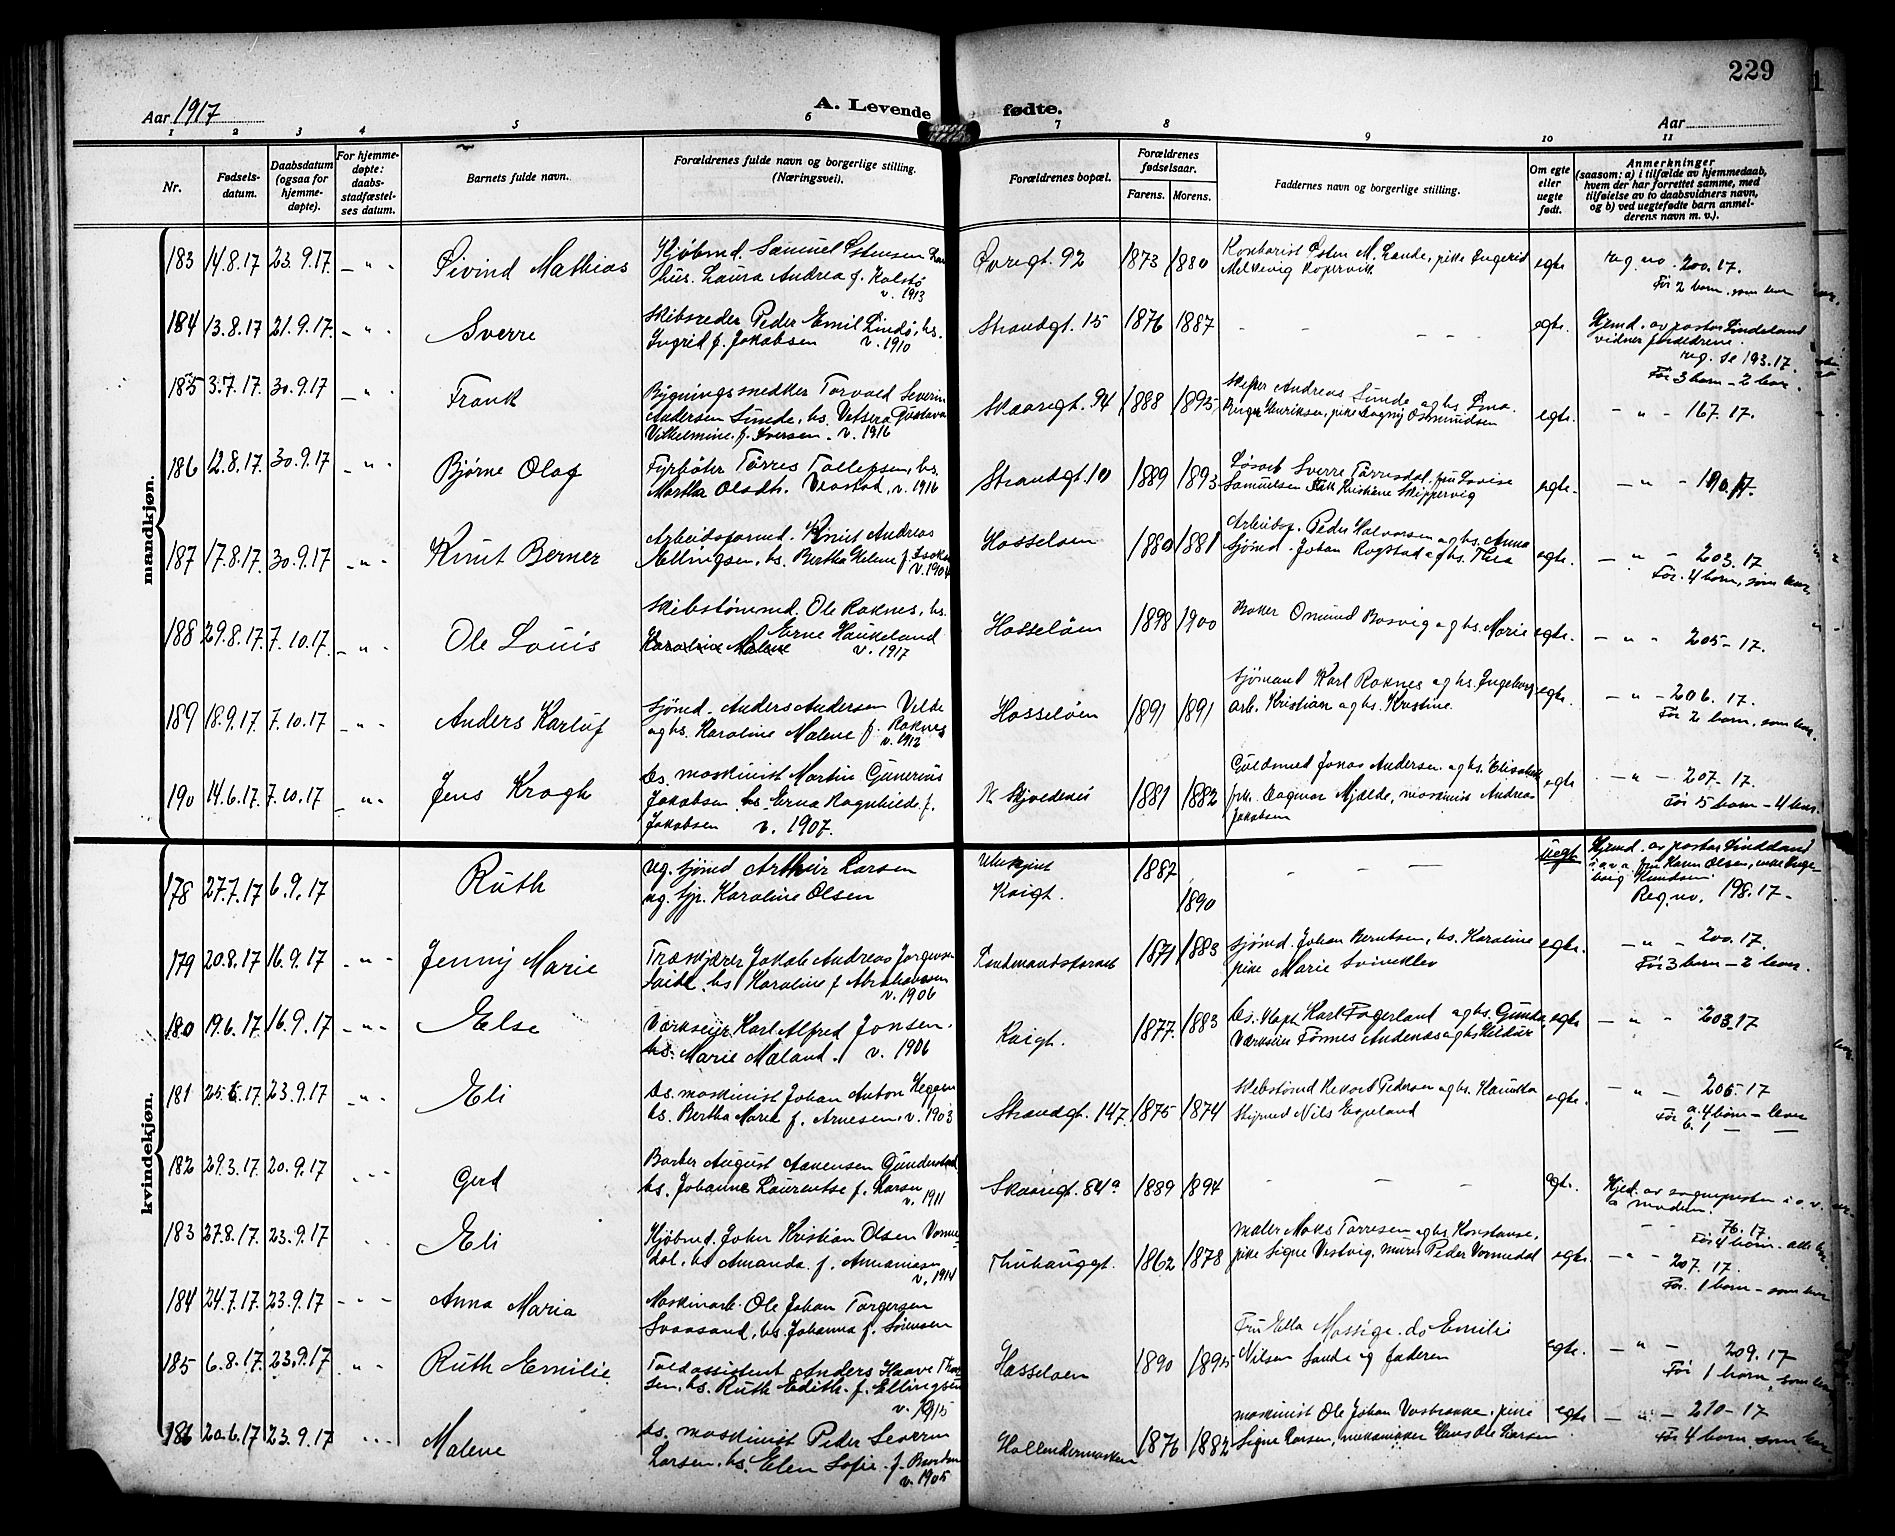 229
Aar 1917
A. Levende fødte.
Aar
1 2 3 4 5 6 7 8 9 10 11
Nr.
Fødsels-
datum.
Daabsdatum
(ogsaa for
hjemme-
døpte).
For hjemme-
døpte:
daabs-
stadfæstel-
ses datum.
Barnets fulde navn.
Forældrenes fulde navn og borgerlige stilling.
(Næringsvei).
Forældrenes bopæl.
Forældrenes
fødselsaar.
Farens. Morens.
Faddernes navn og borgerlige stilling.
Om egte
eller
uegte
født.
Anmerkninger
(saasom: a) i tilfælde av hjemmedaab,
hvem der har forrettet samme, med
tilføielse av to daabsvidners navn,
og b) ved uegtefødte barn anmel-
derens navn m. v.).
mandkjøn.
183 14.8.17 23.9.17 - " - Øivind Mathias
Kjøbmd. Samuel Østensen
hus. Laura Andrea f. Kolstø
v. 1913
Øvregt. 92 1873 1880
Kontorist Østen M. Lande, pike Ingerid
Melkevig Kopervik
egte reg. no. 200.17.
Før 2 born, som lever
184 13.8.17 21.9.17 - " - Sverre
Skibsreder Peder Emil Lindø, hs.
Ingrid f. Jakobsen v. 1910
Strandgt. 15 1876 1887 - - - - egte.
Hjemd. av pastor Lindeland
vidner forældrene.
reg. se 193.17.
Før 3 born - 2 lever.
185 3.7.17 30.9.17 - " - Frank
Bygningssnedker Torvald Severin
Andersen Sunde, hs. Valsera Gustava
Vilhelmine f. Iversen. v. 1916
Skaaregt. 94 1888 1895
Skipper Andreas Sunde og hs. Lina.
Birger Henriksen, pike Dagny Osmundsen
egte. - " - 167.17.
186 12.8.17 30.9.17 - " - Bjørne Olaf
Fyrbøter Tørres Tollefsen, hs.
Martha Olsdtr. Veastad, v. 1916
Strandgt. 10 1889 1893
Løsarb Sverre Tørresdal, fru Lovise
Samuelsen Frk Kristiane Skippervig
egte. - " - 190.17.
187 17.8.17 30.9.17 - " - Knut Berner
Arbeidsformd. Knut Andreas
Ellingsen, hs. Bertha Helene f. Isaksen
v. 1904
Hasseløen 1880 1881
Arbeidsf. Peder Halvorsen og hs. Anna
Sjømd. Johan Rogstad og hs. Thea
egte. - " - 203.17
Før 4 born, som lever
188 29.8.17 7.10.17 - " - Ole Louis
Skibstømmd. Ole Roknes, hs.
Karoline Malene Erne Haukeland
v. 1917
Hasseløen 1898 1900
Baker Omund Bosvig og hs. Marie
egte. - " - 205-17.
189 18.9.17 7.10.17 - " - Anders Karluf
Sjømd. Anders Andersen Velde
og hs. Karoline Malene f. Roknes
v. 1912
Hasseløen 1891 1891
Sjømand Karl Roknes og hs. Ingeborg
arb. Kristian og hs. Kristine.
egte. - " - 206.17.
Før 2 born, som lever.
190 14.6.17 7.10.17 - " - Jens Krogh
Ds. maskinist Martin Gunerius
Jakobsen hs. Erna Ragnhilde f.
Jakobsen v. 1907.
N. Skjoldenes 1881 1882
Guldsmed Jonas Andersen og hs. Elisabeth
frk. Dagmar Mjelde, maskinist Andreas
Jakobsen
egte - " - 207.17.
Før 5 born - 4 lever.
kvindekjøn.
178 27.7.17 6.9.17 Ruth
ug. sjømd Arthur Larsen
ug. tjp. Karoline Olsen
Ubekjent
Kaigt. 1887 1890 - - - uegt.
Hjemd. av pastor Lindeland
i o. v. a. fru Karen Olsen, enke Inge-
borg Knudsen
Reg. no. 198.17-
179 20.8.17 16.9.17 - " - Jenny Marie
Træskjærer Jakob Andreas Jørgensen
hs. Karoline f. Abrahamsen
v. 1906
1871 1883
Sjømd. Johan Berntsen, hs. Karoline
pike Marie Svineklev
egte. - " - 200.17.
Før 3 born - 2 lever.
180 19.6.17 16.9.17 - " - Else
Værkseier Karl Alfred Jonsen.
hs. Marie Mæland. v. 1906
Kaigt. 1877 1883
Ds. kapt Karl Fagerland og hs. Gunda,
Værkseier Tønnes Andenæs og hs. Hildur
egte - " - 203.17
181 25.6.17 23.9.17 - " - Eli
Ds. maskinist Johan Anton Heggen
hs. Bertha Marie f. Arnesen. v. 1903
Strandgt. 147. 1875 1874
Skibstømd Rikard Pedersen og hs. Hanska
Skipmd Nils Espeland
egte. - " - 205.17
Før a. 4 born - lever
b. 1 - -
182 29.3.17 20.9.17 - - - Gerd
Barber August Aanensen Gunderstad
hs. Johanne Laurentse f. Larsen
v. 1911
Skaaregt. 84a 1889 1894 - - - egte.
Hjed. av sogneprest i o. v.
a moderen.
- - 76.17
Før 4 born - alle lever
183 27.8.17 23.9.17 Eli
Kjøbmd. John Kristian Olsen Vorme-
dal, hs Amanda. f. Annaniasen
v. 1914
Thuhauggt. 1862 1878
maler Maks Tørresen og hs. Konstanse,
pike Signe Vestvig, murer Peder Vormedal
egte. - " - 207.17.
Før. 1 born - som lever
184 24.7.17 23.9.17 - - - Anna Maria
Maskinarb. Ole Johan Torgersen
Svaasand, hs. Johanna f. Sørensen
185 6.8.17. 23.9.17 " - Ruth Emilie
Toldassistent Anders Haave
hs. Ruth Edith. f. Ellingsen
v. 1915
Hasseløen 1890 1895
Fru Ella Mossige. do Emilie
Nilsen Sande og faderen
egte. - " - 209.17
Før 1 born, som lever
186 20.6.17 23.9.17 - - - Malene
Ds. maskinist Peder Severin
Larsen. hs. Elen Sofie. f.
v. 1905
Hollendermarken 1876 1882
maskinist Ole Johan Vasbrække. pike
Signe Larsen, mekaniker Hans Ole Larsen
egte - " - 210-17
Før 4 born, som lever